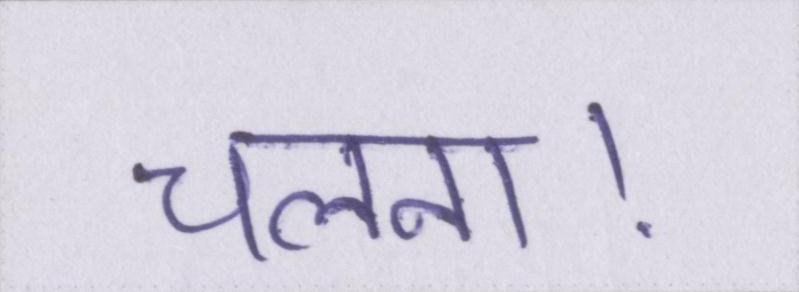 चलना!